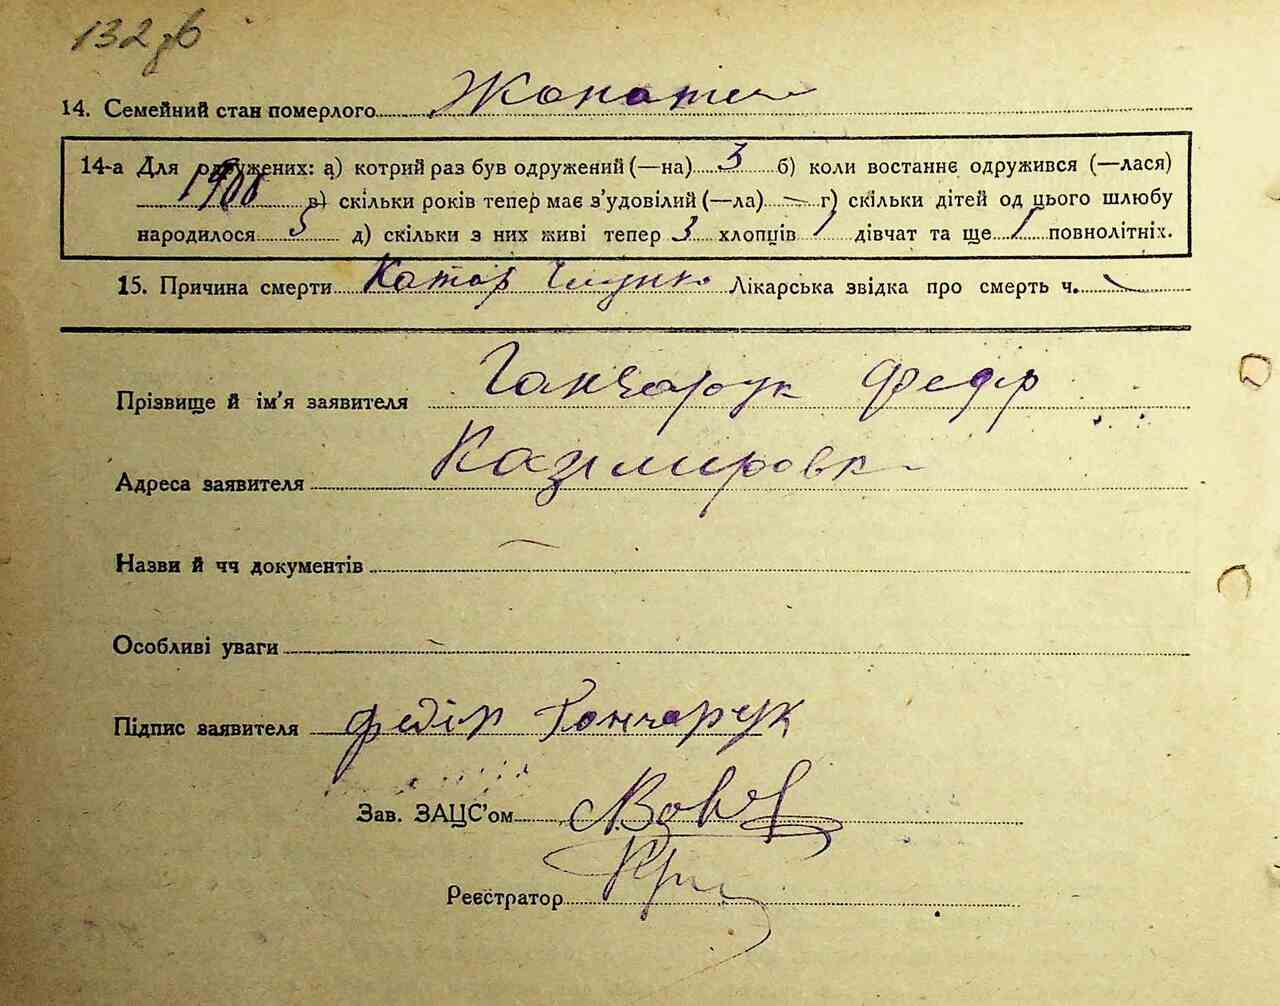 132 зв
14. Семейний стан померлого Жонати
14-а Для одружених: а) котрий раз був одружений (—на) 3 б) коли востаннє одружився (—лася)
1900 в) скільки років тепер має з'удовілий (—ла) — г) скільки дітей од цього шлюбу
народилося 5 д) скільки з них живі тепер 3 хлопців 1 дівчат та ще 1 повнолітніх.
15. Причина смерти Катар Лікарська звідка про смерть ч. —
Прізвище й ім'я заявителя Ганчарук Федір
Адреса заявителя Казімировка
Назви й чч документів —
Особливі уваги —
Підпис заявителя Федір Гончарук
Зав. ЗАЦС'ом
Реєстратор